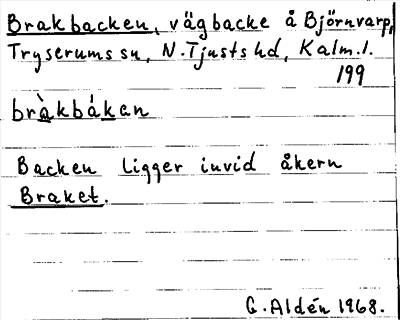 Brakbacken, vägbacke å Björnvarp,
Tryserums sn, N. Tjusts hd, Kalm. l.
199
bràkbáken
Backen ligger invid åkern
Braket.
G. Aldén 1968.